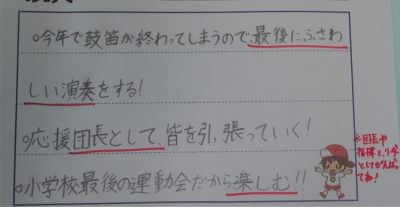 ○今年で鼓笛が終わってしまうので、最後にふさわ
しい演奏をする!
○応援団長として、皆を引っ張っていく!
○小学校最後の運動会だから楽しむ!!
団長や
指揮と、
としてがんばっ
てね!